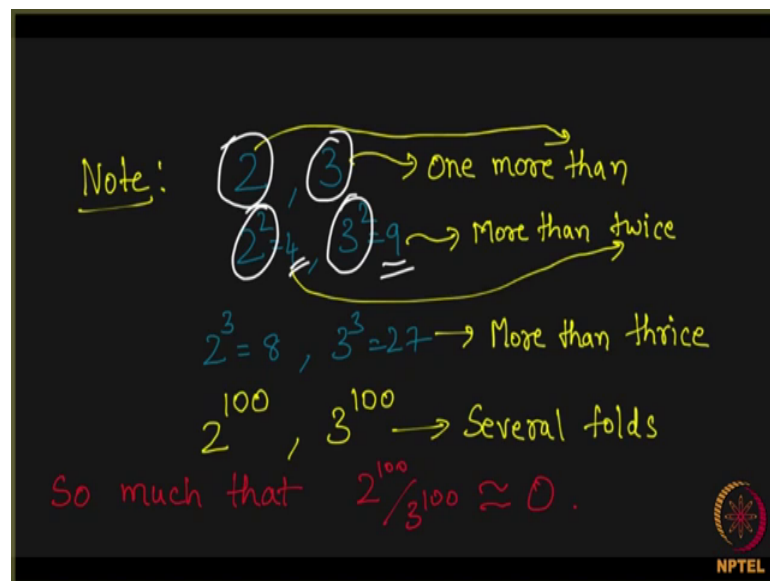 Note: 2 , 3 → One more than
2² = 4 , 3² = 9 → More than twice
2³ = 8 , 3³ = 27 → More than thrice
2¹⁰⁰ , 3¹⁰⁰ → Several folds
So much that 2¹⁰⁰/3¹⁰⁰ ≃ 0.
NPTEL